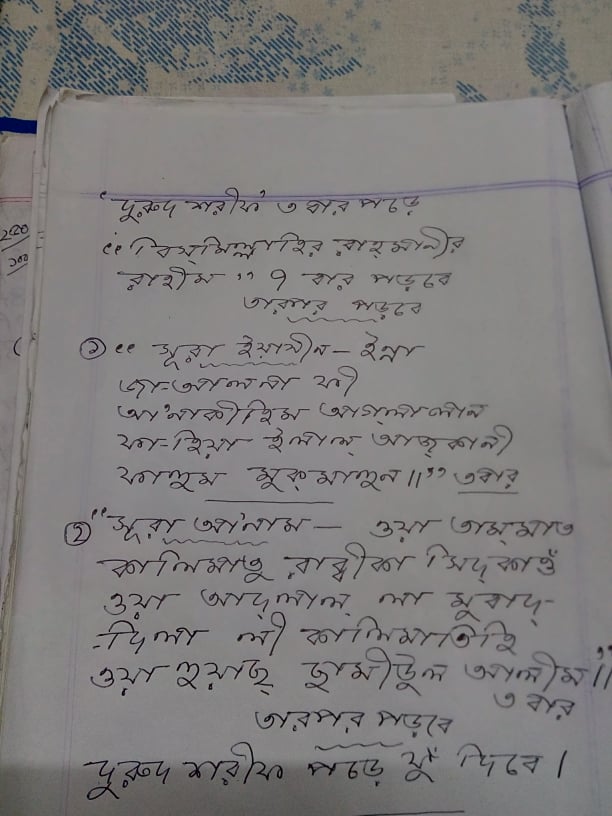 'দুরুদ শরীফ' ৩ বার পড়ে
"বিসমিল্লাহির রাহমানীর
রাহীম" ৭ বার পড়বে
তারপর পড়বে
① "সূরা ইয়াসীন- ইন্না
জা-আলনা ফী
আ'নাকীহিম আগলালান
ফা-হিয়া ইলাল্ আজ্কানী
ফাহুম মুক্মাহুন॥" ৩বার
② "সূরা আ'নাম- ওয়া তাম্মাত
কালিমাতু রাব্বীকা সিদ্কাওঁ
ওয়া আদ্লাল্ লা মুবাদ্-
-দিলা লী কালিমাতিহি
ওয়া হুয়াছ্ ছামীউল আলীম॥"
৩ বার
তারপর পড়বে
দুরুদ শরীফ পড়ে ফুঁ দিবে।